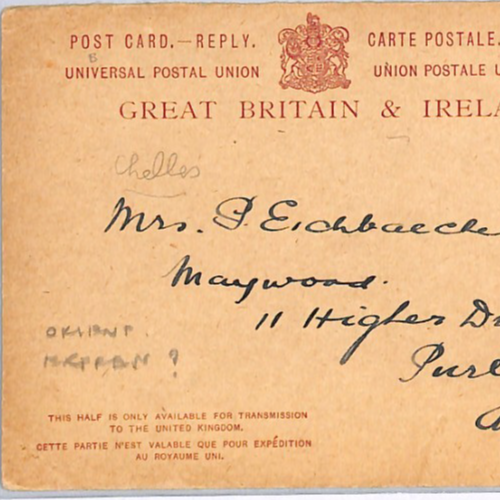 POST CARD.—REPLY. CARTE POSTALE.
UNIVERSAL POSTAL UNION UNION POSTALE U
GREAT BRITAIN & IRELA
Chelles
Mrs. P. Eichbaecke
Maywood.
11 Higher Dr
Purl
ORIENT.
?
THIS HALF IS ONLY AVAILABLE FOR TRANSMISSION
TO THE UNITED KINGDOM.
CETTE PARTIE N'EST VALABLE QUE POUR EXPÉDITION
AU ROYAUME UNI.